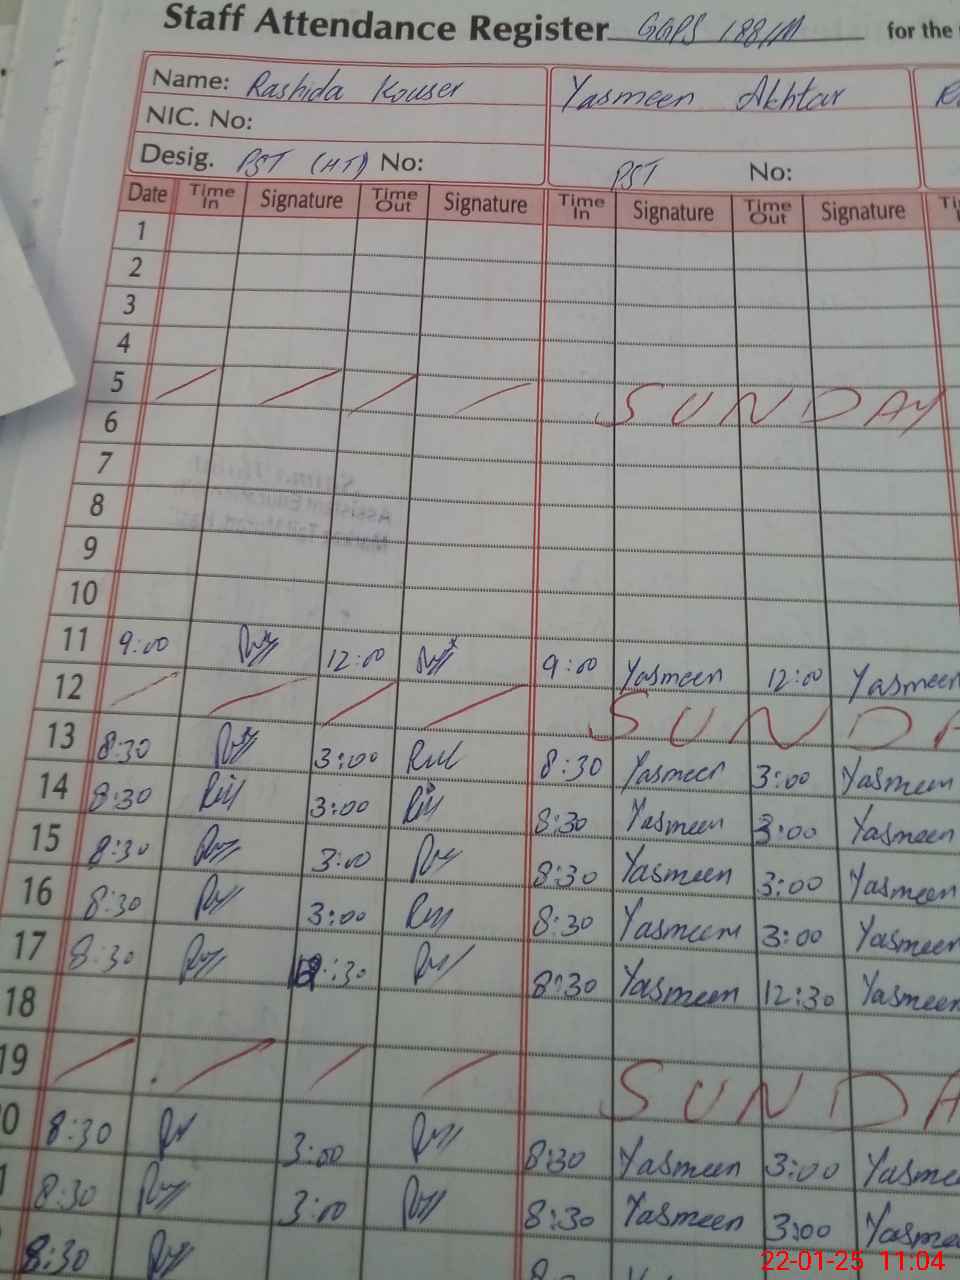 Staff Attendance Register GGPS 188/M for the
Name: Rashida Kouser Yasmeen Akhtar
NIC. No:
Desig. PST (HT) No: PST No:
Date Time In Signature Time Out Signature Time In Signature Time Out Signature
1
2
3
4
5 SUNDAY
6
7
8
9
10
11 9:00 12:00 9:00 Yasmeen 12:00 Yasmeen
12 SUNDA
13 8:30 3:00 8:30 Yasmeen 3:00 Yasmeen
14 8:30 3:00 8:30 Yasmeen 3:00 Yasmeen
15 8:30 3:00 8:30 Yasmeen 3:00 Yasmeen
16 8:30 3:00 8:30 Yasmeen 3:00 Yasmeen
17 8:30 12:30 8:30 Yasmeen 12:30 Yasmeen
18
19 SUNDA
0 8:30 3:00 8:30 Yasmeen 3:00 Yasme
1 8:30 3:00 8:30 Yasmeen 3:00 Yasme
8:30
22-01-25 11:04